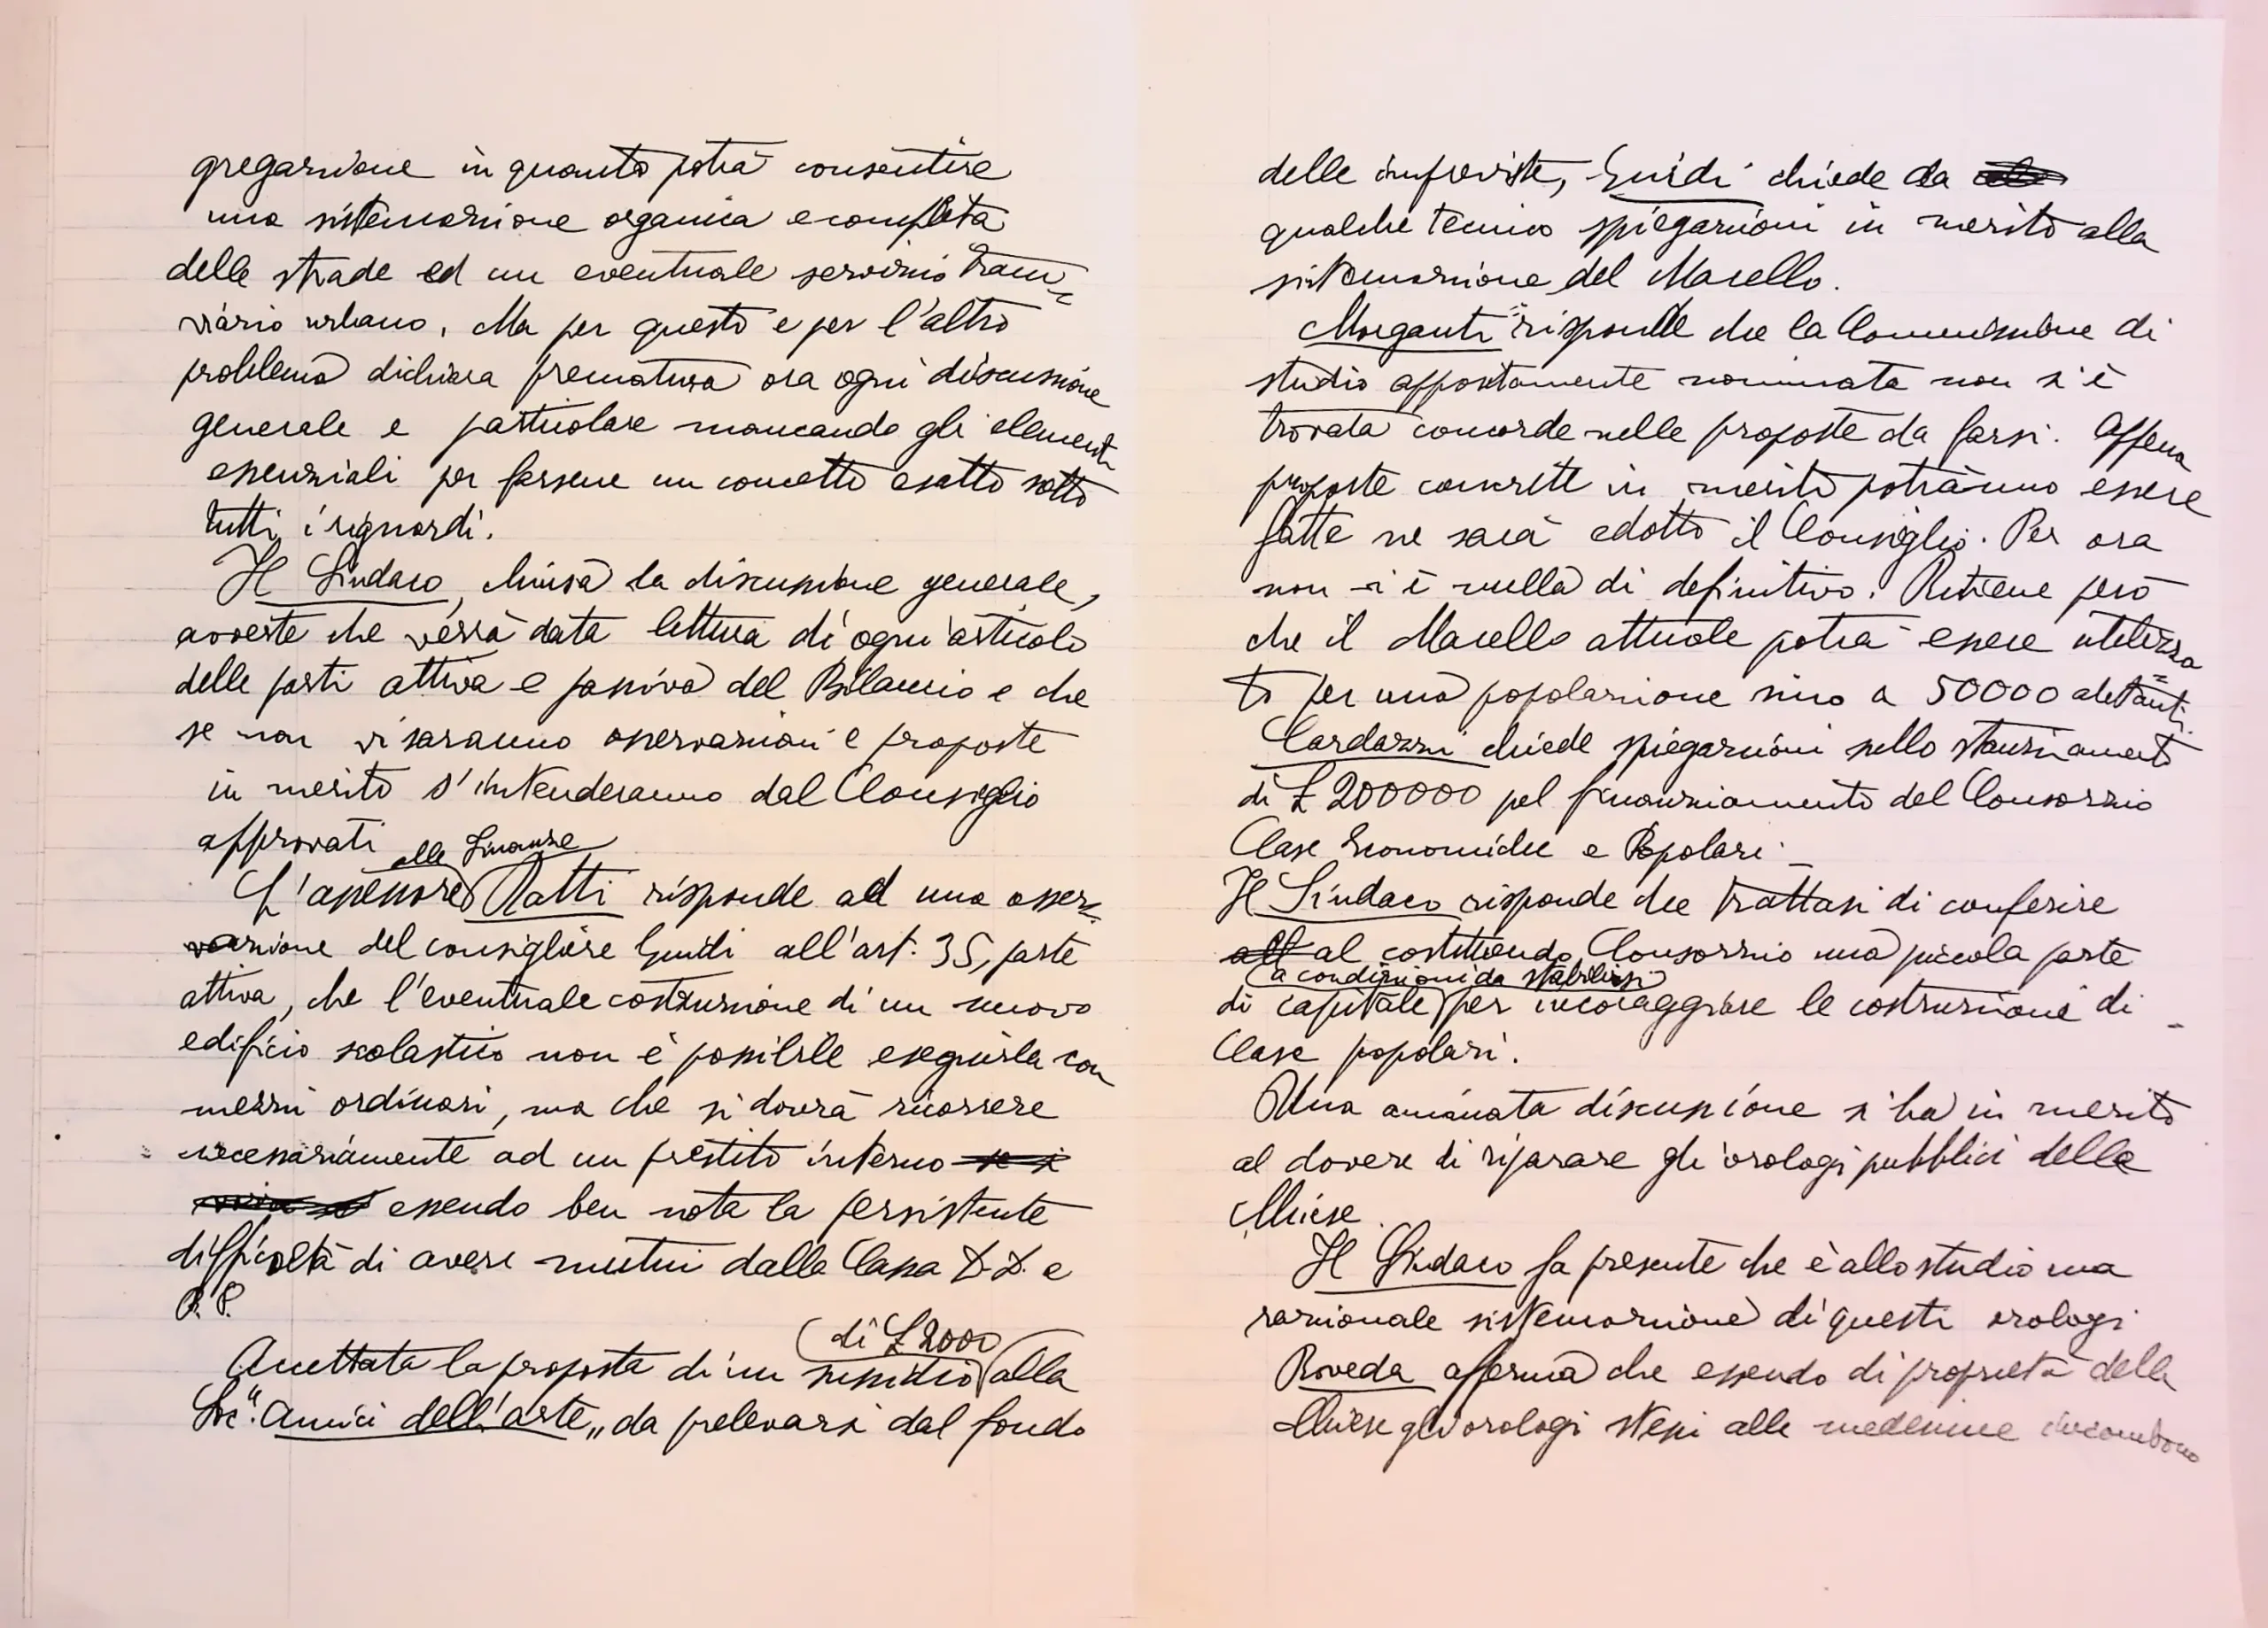 gregazione in quanto potrà consentire
una sistemazione organica e completa
delle strade ed un eventuale servizio tram=
viario urbano. Ma per questo e per l'altro
problema dichiara prematura ora ogni discussione
generale e particolare mancando gli elementi
essenziali per farsene un concetto esatto sotto
tutti i riguardi.
Il Sindaco, chiusa la discussione generale,
avverte che verrà data lettura di ogni articolo
delle parti attiva e passiva del Bilancio e che
se non vi saranno osservazioni e proposte
in merito s'intenderanno dal Consiglio
approvati
alle Finanze
L'assessore Ratti risponde ad una osser=
vazione del consigliere Guidi all'art. 35, parte
attiva, che l'eventuale costruzione di un nuovo
edificio scolastico non è possibile eseguirla con
mezzi ordinari, ma che si dovrà ricorrere
necessariamente ad un prestito interno se si
essendo ben nota la persistente
difficoltà di avere mutui dalla Cassa D.D. e
P.P.
di £ 2000
Accettata la proposta di un sussidio alla
Soc. "Amici dell'arte" da prelevarsi dal fondo
delle impreviste, Guidi chiede da
qualche tecnico spiegazioni in merito alla
sistemazione del Macello.
Morganti risponde che la Commissione di
studio appositamente nominata non s'è
trovata concorde nelle proposte da farsi. Appena
proposte concrete in merito potranno essere
fatte ne sarà edotto il Consiglio. Per ora
non vi è nulla di definitivo. Ritiene però
che il Macello attuale potrà essere utilizza=
to per una popolazione sino a 50000 abitanti.
Cardazzi chiede spiegazioni sullo stanziamento
di £ 200000 pel finanziamento del Consorzio
Case Economiche e Popolari.
Il Sindaco risponde che trattasi di conferire
all al costituendo Consorzio una piccola parte
a condizioni da stabilirsi
di capitale per incoraggiare le costruzione di
Case popolari.
Una animata discussione s'ha in merito
al dovere di riparare gli orologi pubblici delle
Chiese.
Il Sindaco fa presente che è allo studio una
razionale sistemazione di questi orologi
Roveda afferma che essendo di proprietà della
Chiese gli orologi stessi alle medesime incombono